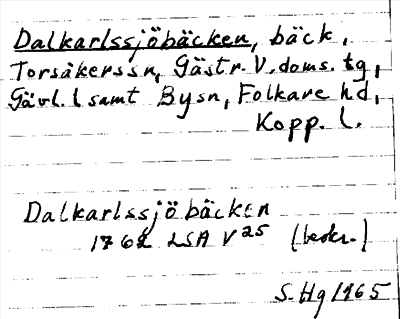 Dalkarlssjöbäcken, bäck,
Torsåkers sn, Gästr. V. doms. tg,
Gävl. l samt By sn, Folkare hd,
Kopp. l.
Dalkarlssjöbäcken
1762 LSA V25 (beskr.)
S. Hg 1965